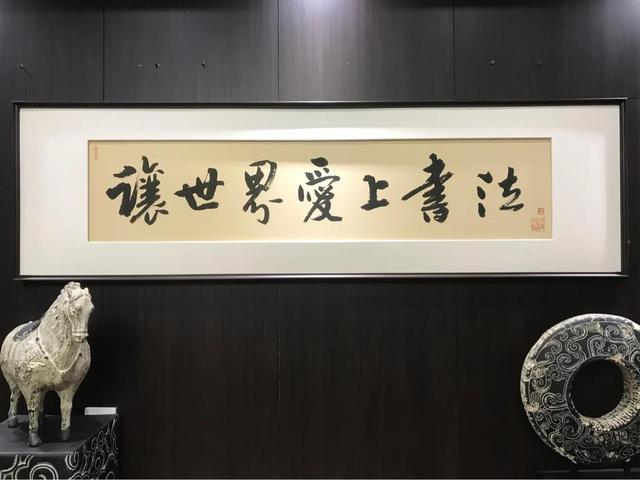 讓世界愛上書法